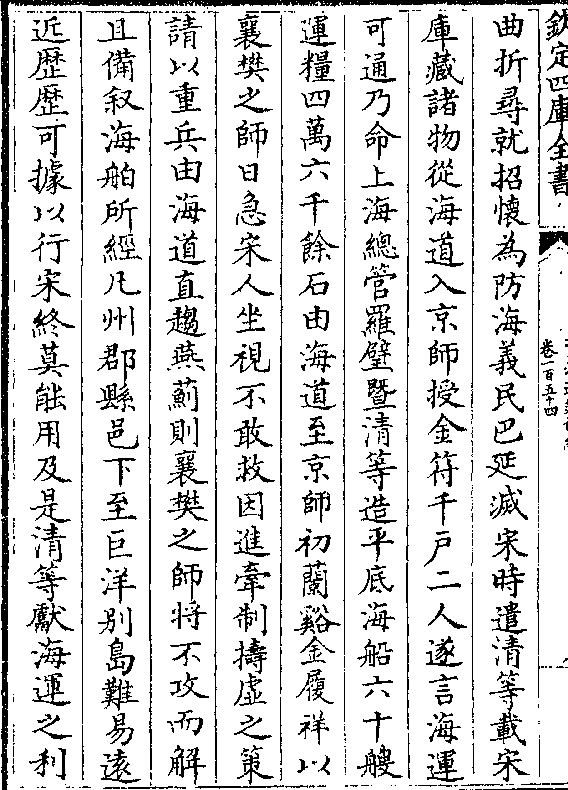 欽定四庫全書
卷一百五十四
曲折尋就招懷為防海義民巴延滅宋時遣清等載宋
庫藏諸物從海道入京師授金符千戶二人遂言海運
可通乃命上海總管羅璧暨清等造平底海船六十艘
運糧四萬六千餘石由海道至京師初蘭谿金履祥以
襄樊之師日急宋人坐視不敢救因進牽制擣虛之策
請以重兵由海道直趨燕薊則襄樊之師將不攻而解
且備叙海舶所經凡州郡縣邑下至巨洋別島難易遠
近歴歴可據以行宋終莫能用及是清等獻海運之利